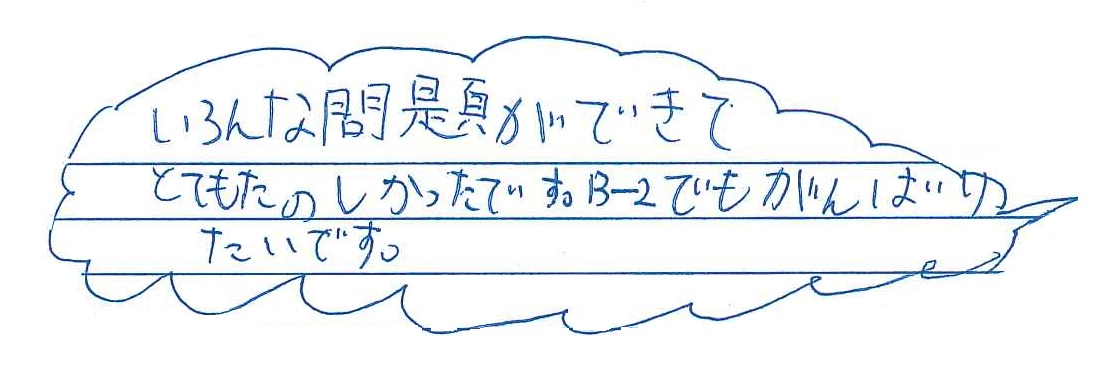 いろんな問題ができて
とてもたのしかったです。B-2でもがんばり
たいです。